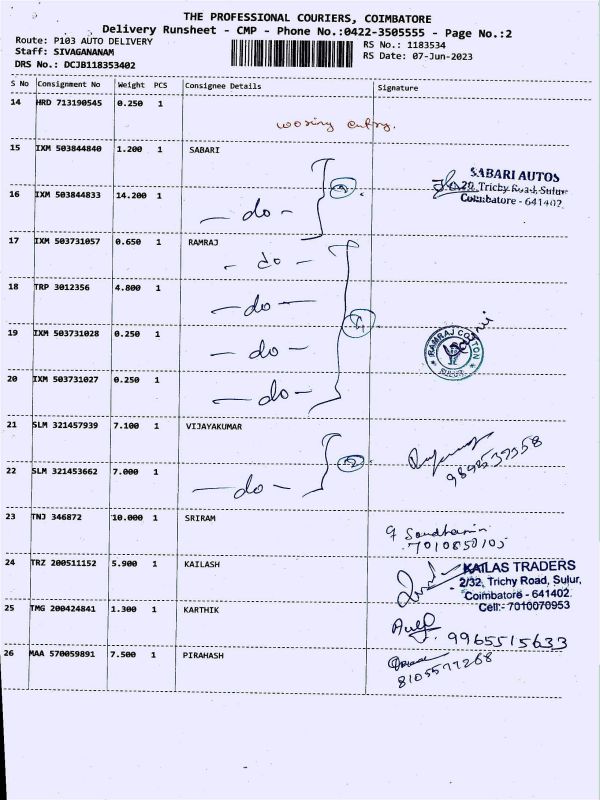 THE PROFESSIONAL COURIERS, COIMBATORE
Delivery Runsheet - CMP - Phone No.:0422-3505555 - Page No.:2
Route: P103 AUTO DELIVERY
RS No.: 1183534
Staff: SIVAGANANAM
RS Date: 07-Jun-2023
DRS No.: DCJB118353402
S No Consignment No Weight PCS Consignee Details Signature
14 HRD 713190545 0.250 1
entry.
15 IXM 503844840 1.200 1 SABARI
SABARI AUTOS
Trichy Road, Sulur
Coimbatore - 641402
16 IXM 503844833 14.200 1 - do -
17 IXM 503731057 0.650 1 RAMRAJ
- do -
18 TRP 3012356 4.800 1 - do -
19 IXM 503731028 0.250 1 - do -
RAMRAJ COTTON
SULUR
20 IXM 503731027 0.250 1 - do -
21 SLM 321457939 7.100 1 VIJAYAKUMAR
22 SLM 321453662 7.000 1 - do -
23 TNJ 346872 10.000 1 SRIRAM
24 TRZ 200511152 5.900 1 KAILASH
KAILAS TRADERS
2/32, Trichy Road, Sulur,
Coimbatore - 641402
Cell:- 7010070953
25 TMG 200424841 1.300 1 KARTHIK
9965515633
26 MAA 570059891 7.500 1 PIRAHASH